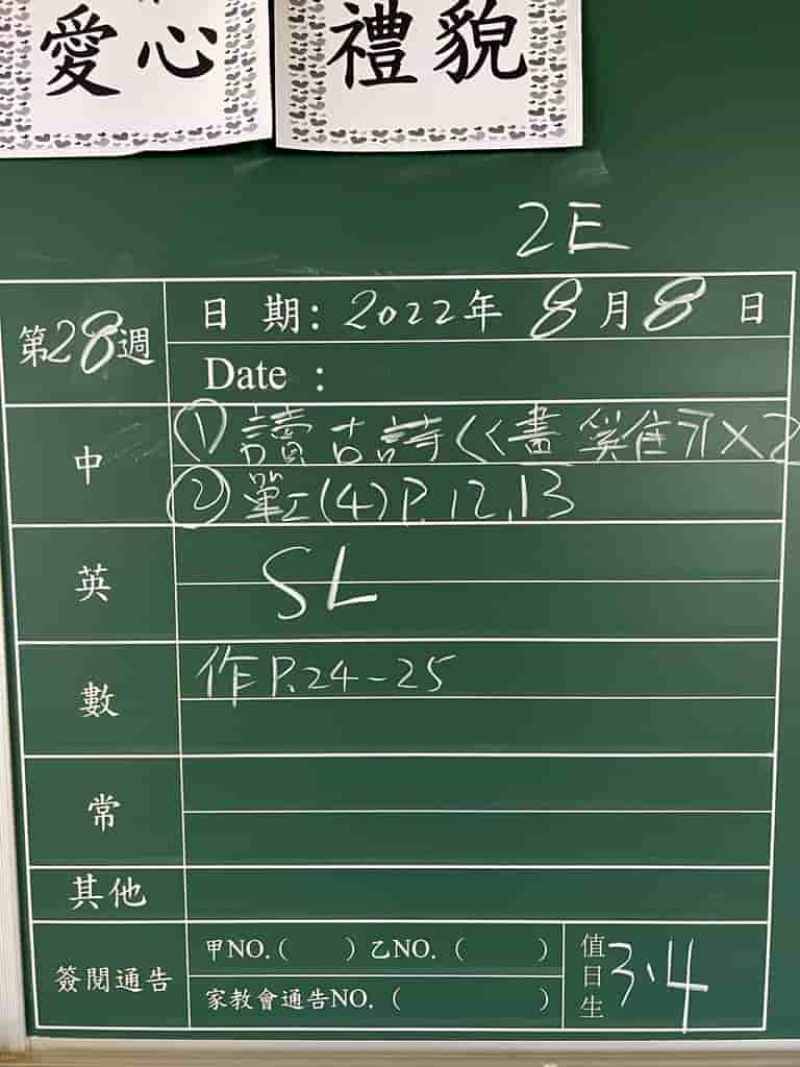 愛心 禮貌
2E
第28週
日期：2022年8月8日
Date：
中
① 讀古詩<<畫 ×2
② (4)P.12,13
英
SL
數
作P.24-25
常
其他
簽閱通告
甲NO.( ) 乙NO.( )
家教會通告NO.( )
值日生 3、4